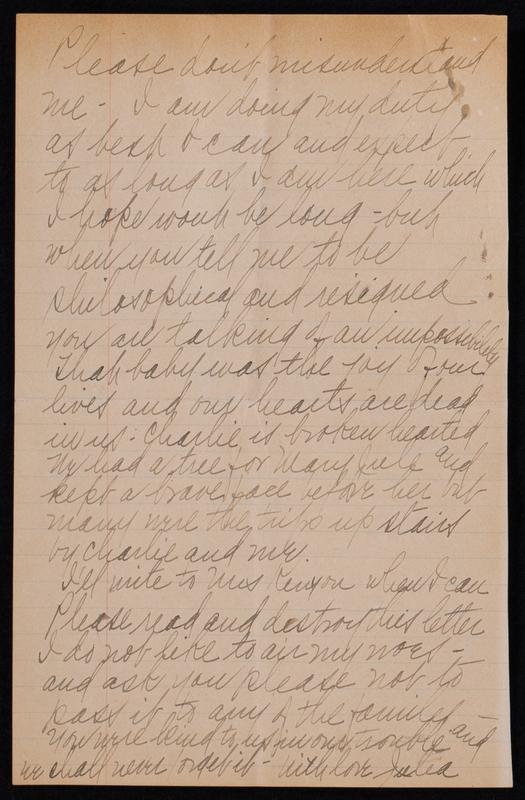 Please don't misunderstand
me - I am doing my duty
as best I can and expect
to as long as I am here which
I hope wont be long - but
when you tell me to be
philosophical and resigned
you are talking of an impossibility
That baby was the joy of our
lives and our hearts are dead
in us - Charlie is broken hearted
We had a tree for Mary Jule and
kept a brave face before her but
many were the trips up stairs
by Charlie and me.
I'll write to Mrs Kenyon when I can
Please read and destroy this letter
I do not like to air my woes -
and ask you please not to
pass it to any of the family -
You were kind to us in our trouble and
we shall never forget it - With love Julia